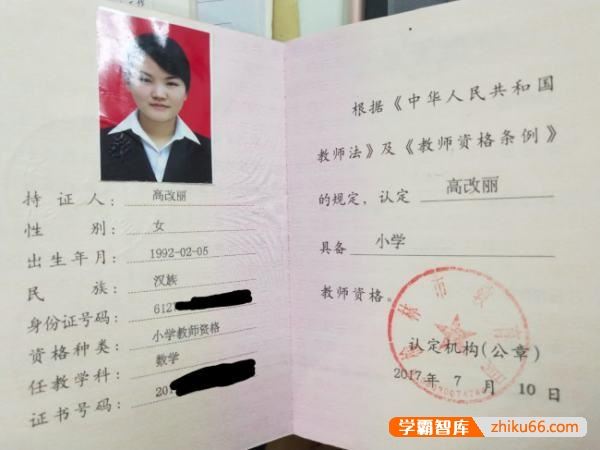 持证人：高改丽
性别：女
出生年月：1992-02-05
民族：汉族
身份证号码：612
资格种类：小学教师资格
任教学科：数学
证书号码：201
根据《中华人民共和国
教师法》及《教师资格条例》
的规定，认定 高改丽
具备 小学
教师资格。
认定机构(公章)
2017年 7 月 10 日
学霸智库 zhiku66.com